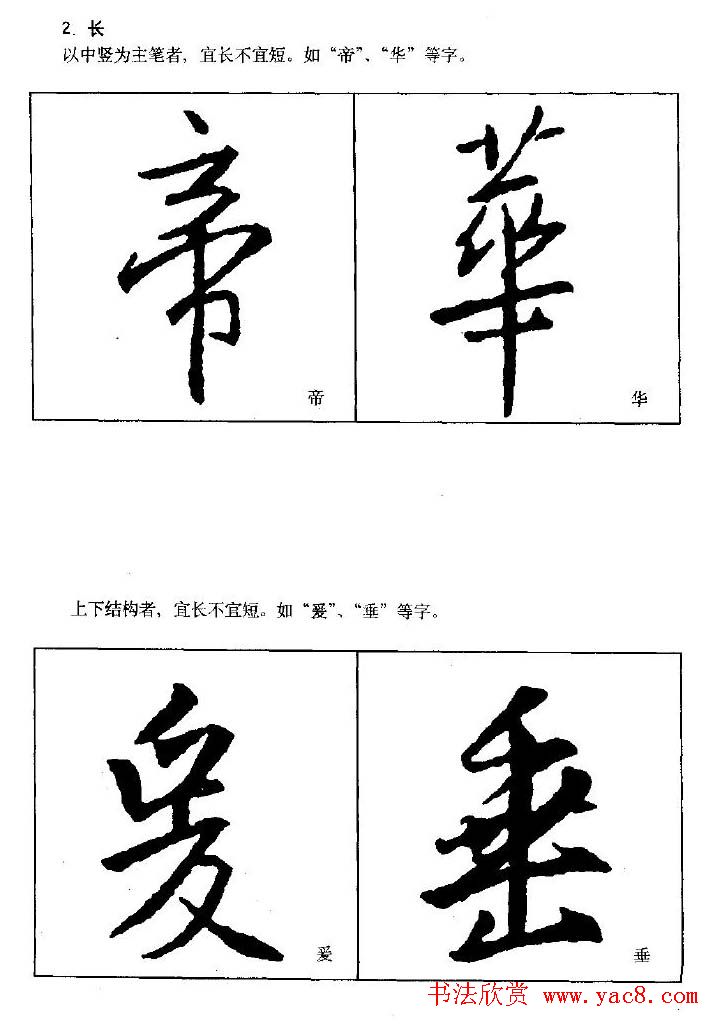 2. 长
以中竖为主笔者，宜长不宜短。如“帝”、“华”等字。
帝 華
帝 华
上下结构者，宜长不宜短。如“爰”、“垂”等字。
爰 垂
爰 垂
书法欣赏 www.yac8.com